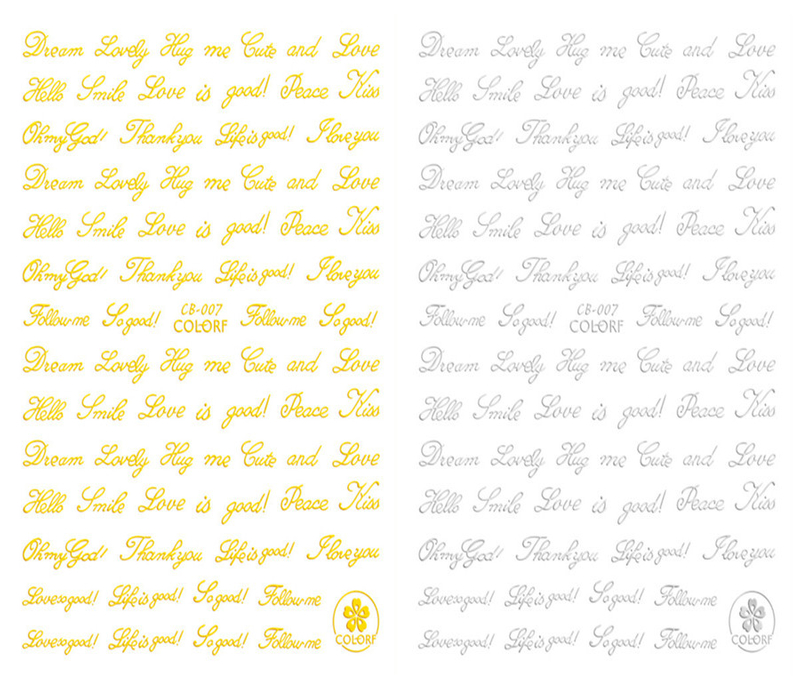 Dream Lovely Hug me Cute and Love
Hello Smile Love is good! Peace Kiss
Oh my God! Thank you Life is good! I love you
Dream Lovely Hug me Cute and Love
Hello Smile Love is good! Peace Kiss
Oh my God! Thank you Life is good! I love you
Follow me So good! CB-007 COLORF Follow me So good!
Dream Lovely Hug me Cute and Love
Hello Smile Love is good! Peace Kiss
Dream Lovely Hug me Cute and Love
Hello Smile Love is good! Peace Kiss
Oh my God! Thank you Life is good! I love you
Love so good! Life is good! So good! Follow me
Love so good! Life is good! So good! Follow me COLORF
Dream Lovely Hug me Cute and Love
Hello Smile Love is good! Peace Kiss
Oh my God! Thank you Life is good! I love you
Dream Lovely Hug me Cute and Love
Hello Smile Love is good! Peace Kiss
Oh my God! Thank you Life is good! I love you
Follow me So good! CB-007 COLORF Follow me So good!
Dream Lovely Hug me Cute and Love
Hello Smile Love is good! Peace Kiss
Dream Lovely Hug me Cute and Love
Hello Smile Love is good! Peace Kiss
Oh my God! Thank you Life is good! I love you
Love so good! Life is good! So good! Follow me
Love so good! Life is good! So good! Follow me COLORF